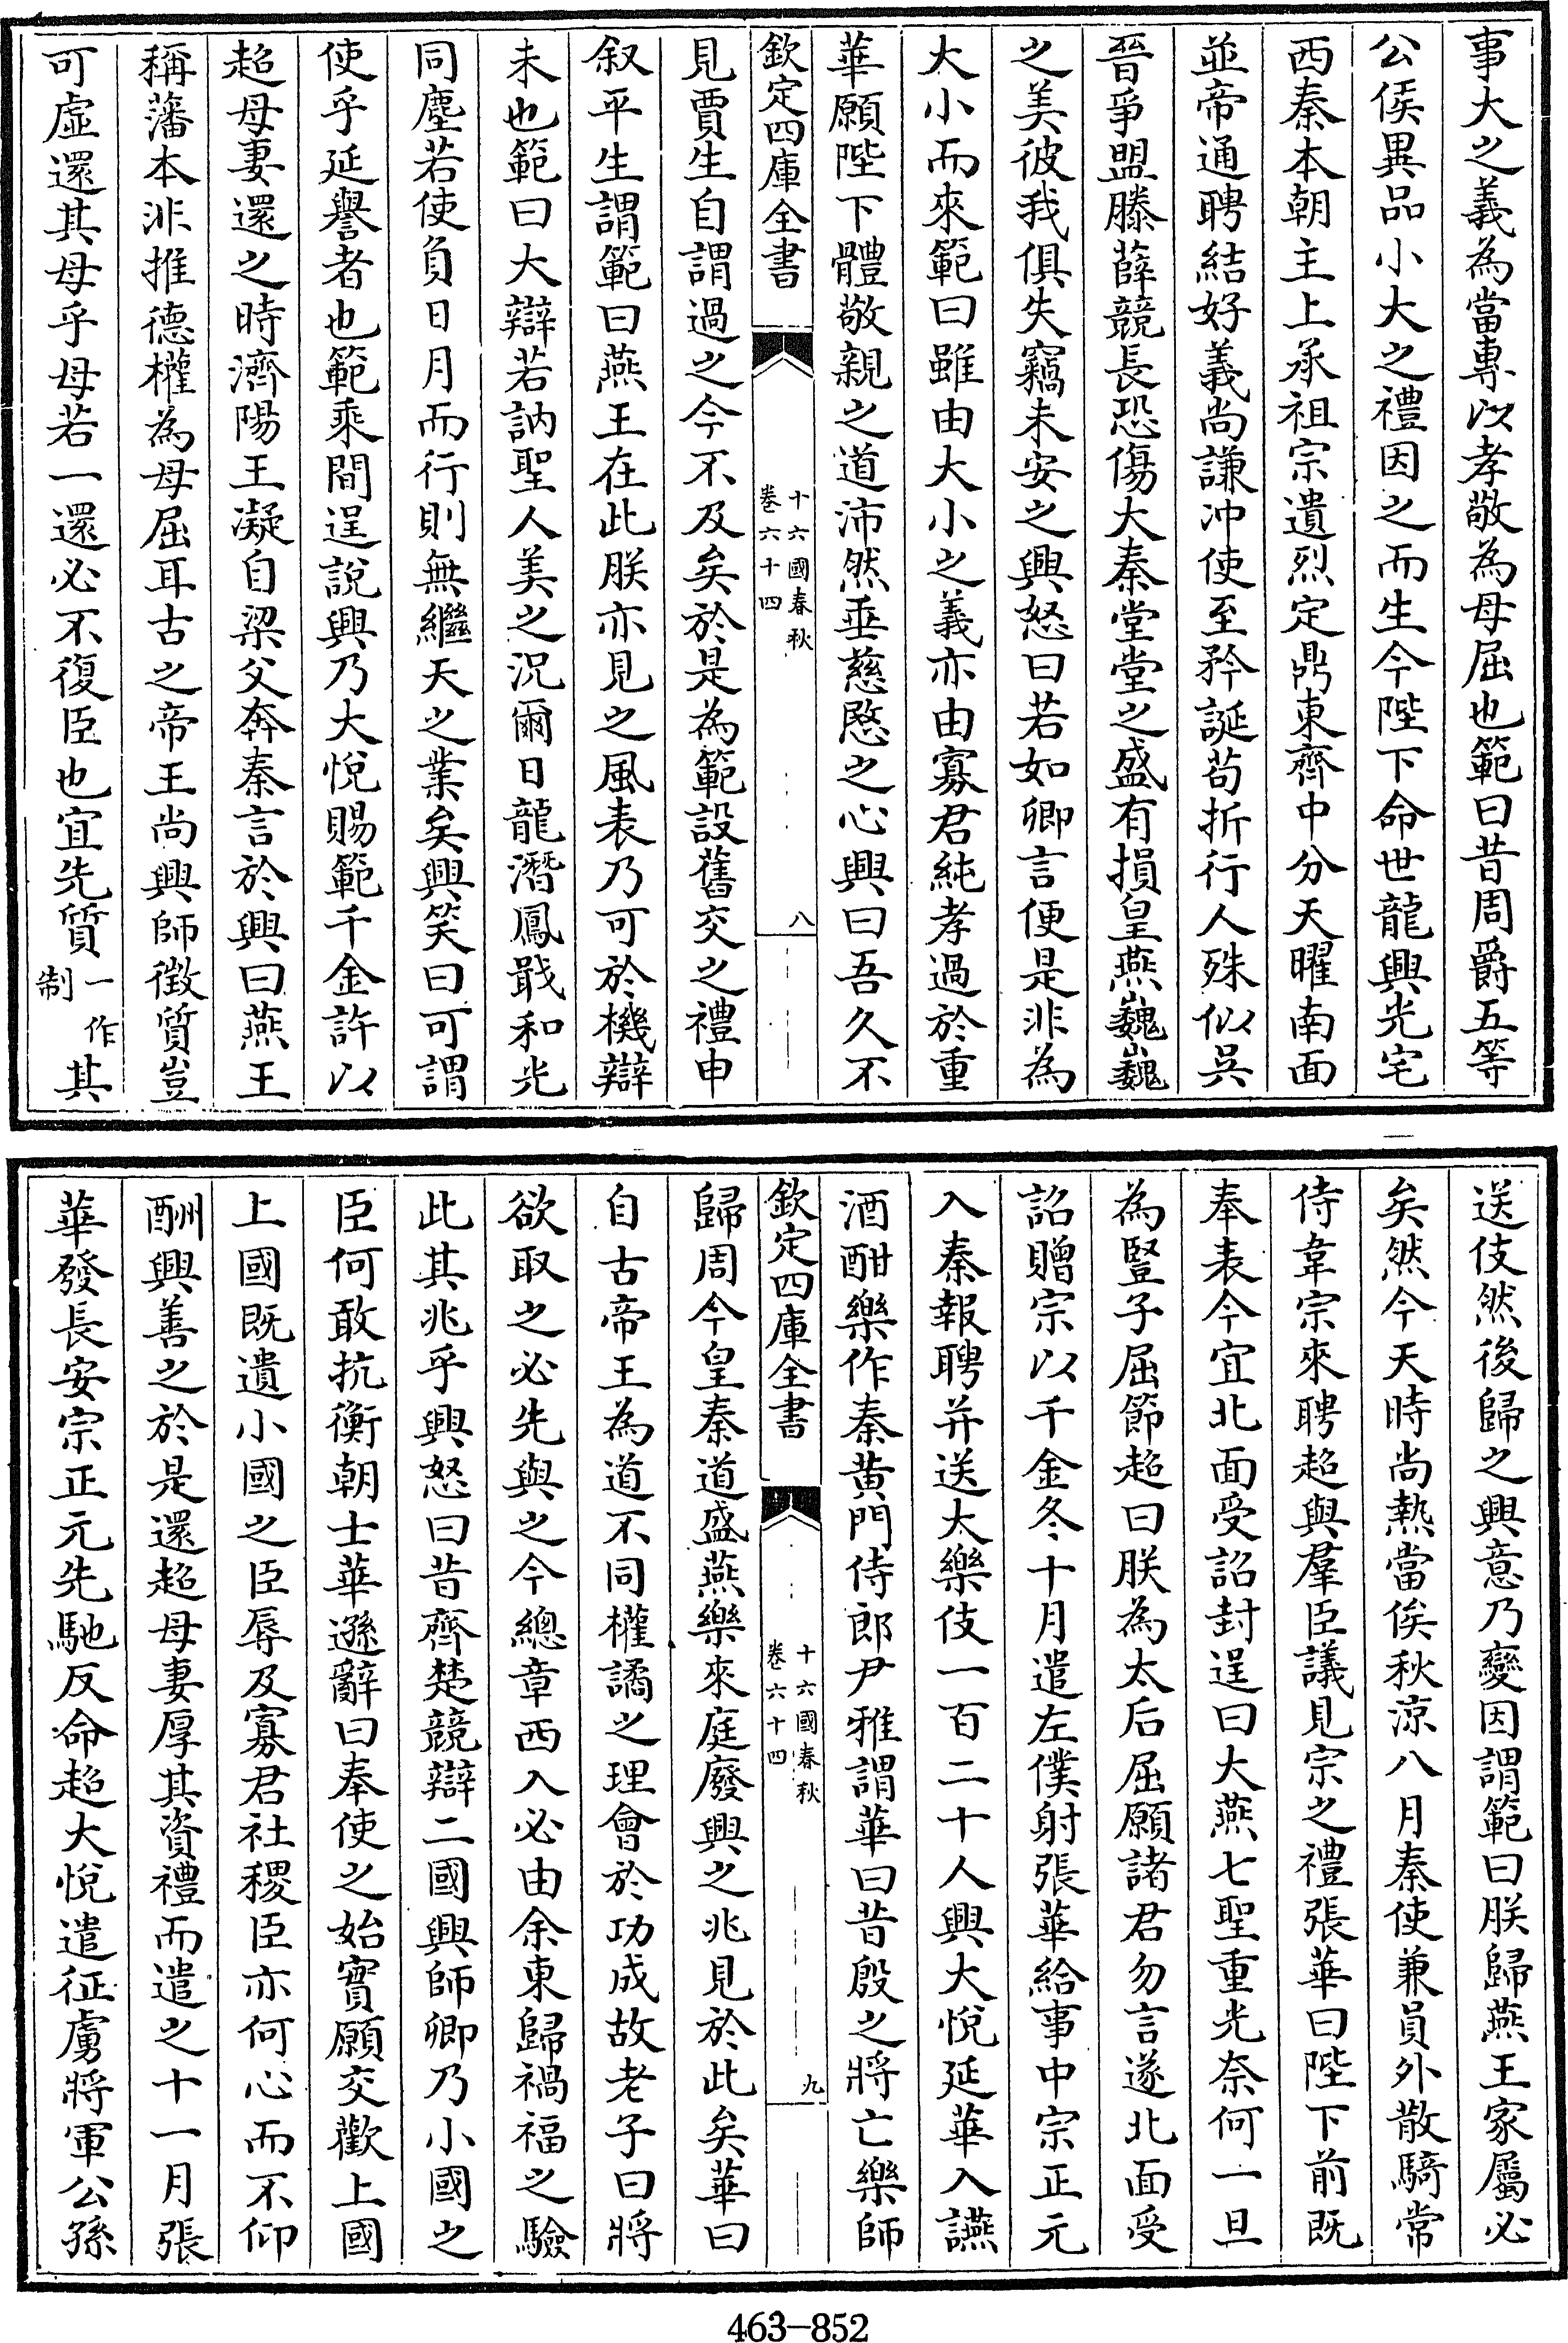 事大之義為當專以孝敬為母屈也範曰昔周爵五等
公侯異品小大之禮因之而生今陛下命世龍興光宅
西秦本朝主上承祖宗遺烈定鼎東齊中分天曜南面
並帝通聘結好義尚謙冲使至矜誕苟折行人殊似吳
晉爭盟滕薛競長恐傷大秦堂堂之盛有損皇燕巍巍
之美彼我俱失竊未安之興怒曰若如卿言便是非為
大小而來範曰雖由大小之義亦由寡君純孝過於重
華願陛下體敬親之道沛然垂慈愍之心興曰吾久不
欽定四庫全書
十六國春秋
卷六十四
八
見賈生自謂過之今不及矣於是為範設舊交之禮申
叙平生謂範曰燕王在此朕亦見之風表乃可於機辯
未也範曰大辯若訥聖人美之況爾日龍潛鳳戢和光
同塵若使負日月而行則無繼天之業矣興笑曰可謂
使乎延譽者也範乘間逞說興乃大悅賜範千金許以
超母妻還之時濟陽王凝自梁父奔秦言於興曰燕王
稱藩本非推德權為母屈耳古之帝王尚興師徵質豈
可虛還其母乎母若一還必不復臣也宜先質一作制其
送伎然後歸之興意乃變因謂範曰朕歸燕王家屬必
矣然今天時尚熱當俟秋涼八月秦使兼員外散騎常
侍韋宗來聘超與羣臣議見宗之禮張華曰陛下前既
奉表今宜北面受詔封逞曰大燕七聖重光奈何一旦
為豎子屈節超曰朕為太后屈願諸君勿言遂北面受
詔贈宗以千金冬十月遣左僕射張華給事中宗正元
入秦報聘并送太樂伎一百二十人興大悅延華入讌
酒酣樂作秦黃門侍郎尹雅謂華曰昔殷之將亡樂師
欽定四庫全書
十六國春秋
卷六十四
九
歸周今皇秦道盛燕樂來庭廢興之兆見於此矣華曰
自古帝王為道不同權譎之理會於功成故老子曰將
欲取之必先與之今總章西入必由余東歸禍福之驗
此其兆乎興怒曰昔齊楚競辯二國興師卿乃小國之
臣何敢抗衡朝士華遜辭曰奉使之始實願交歡上國
上國既遺小國之臣辱及寡君社稷臣亦何心而不仰
酬興善之於是還超母妻厚其資禮而遣之十一月張
華發長安宗正元先馳反命超大悅遣征虜將軍公孫
463-852